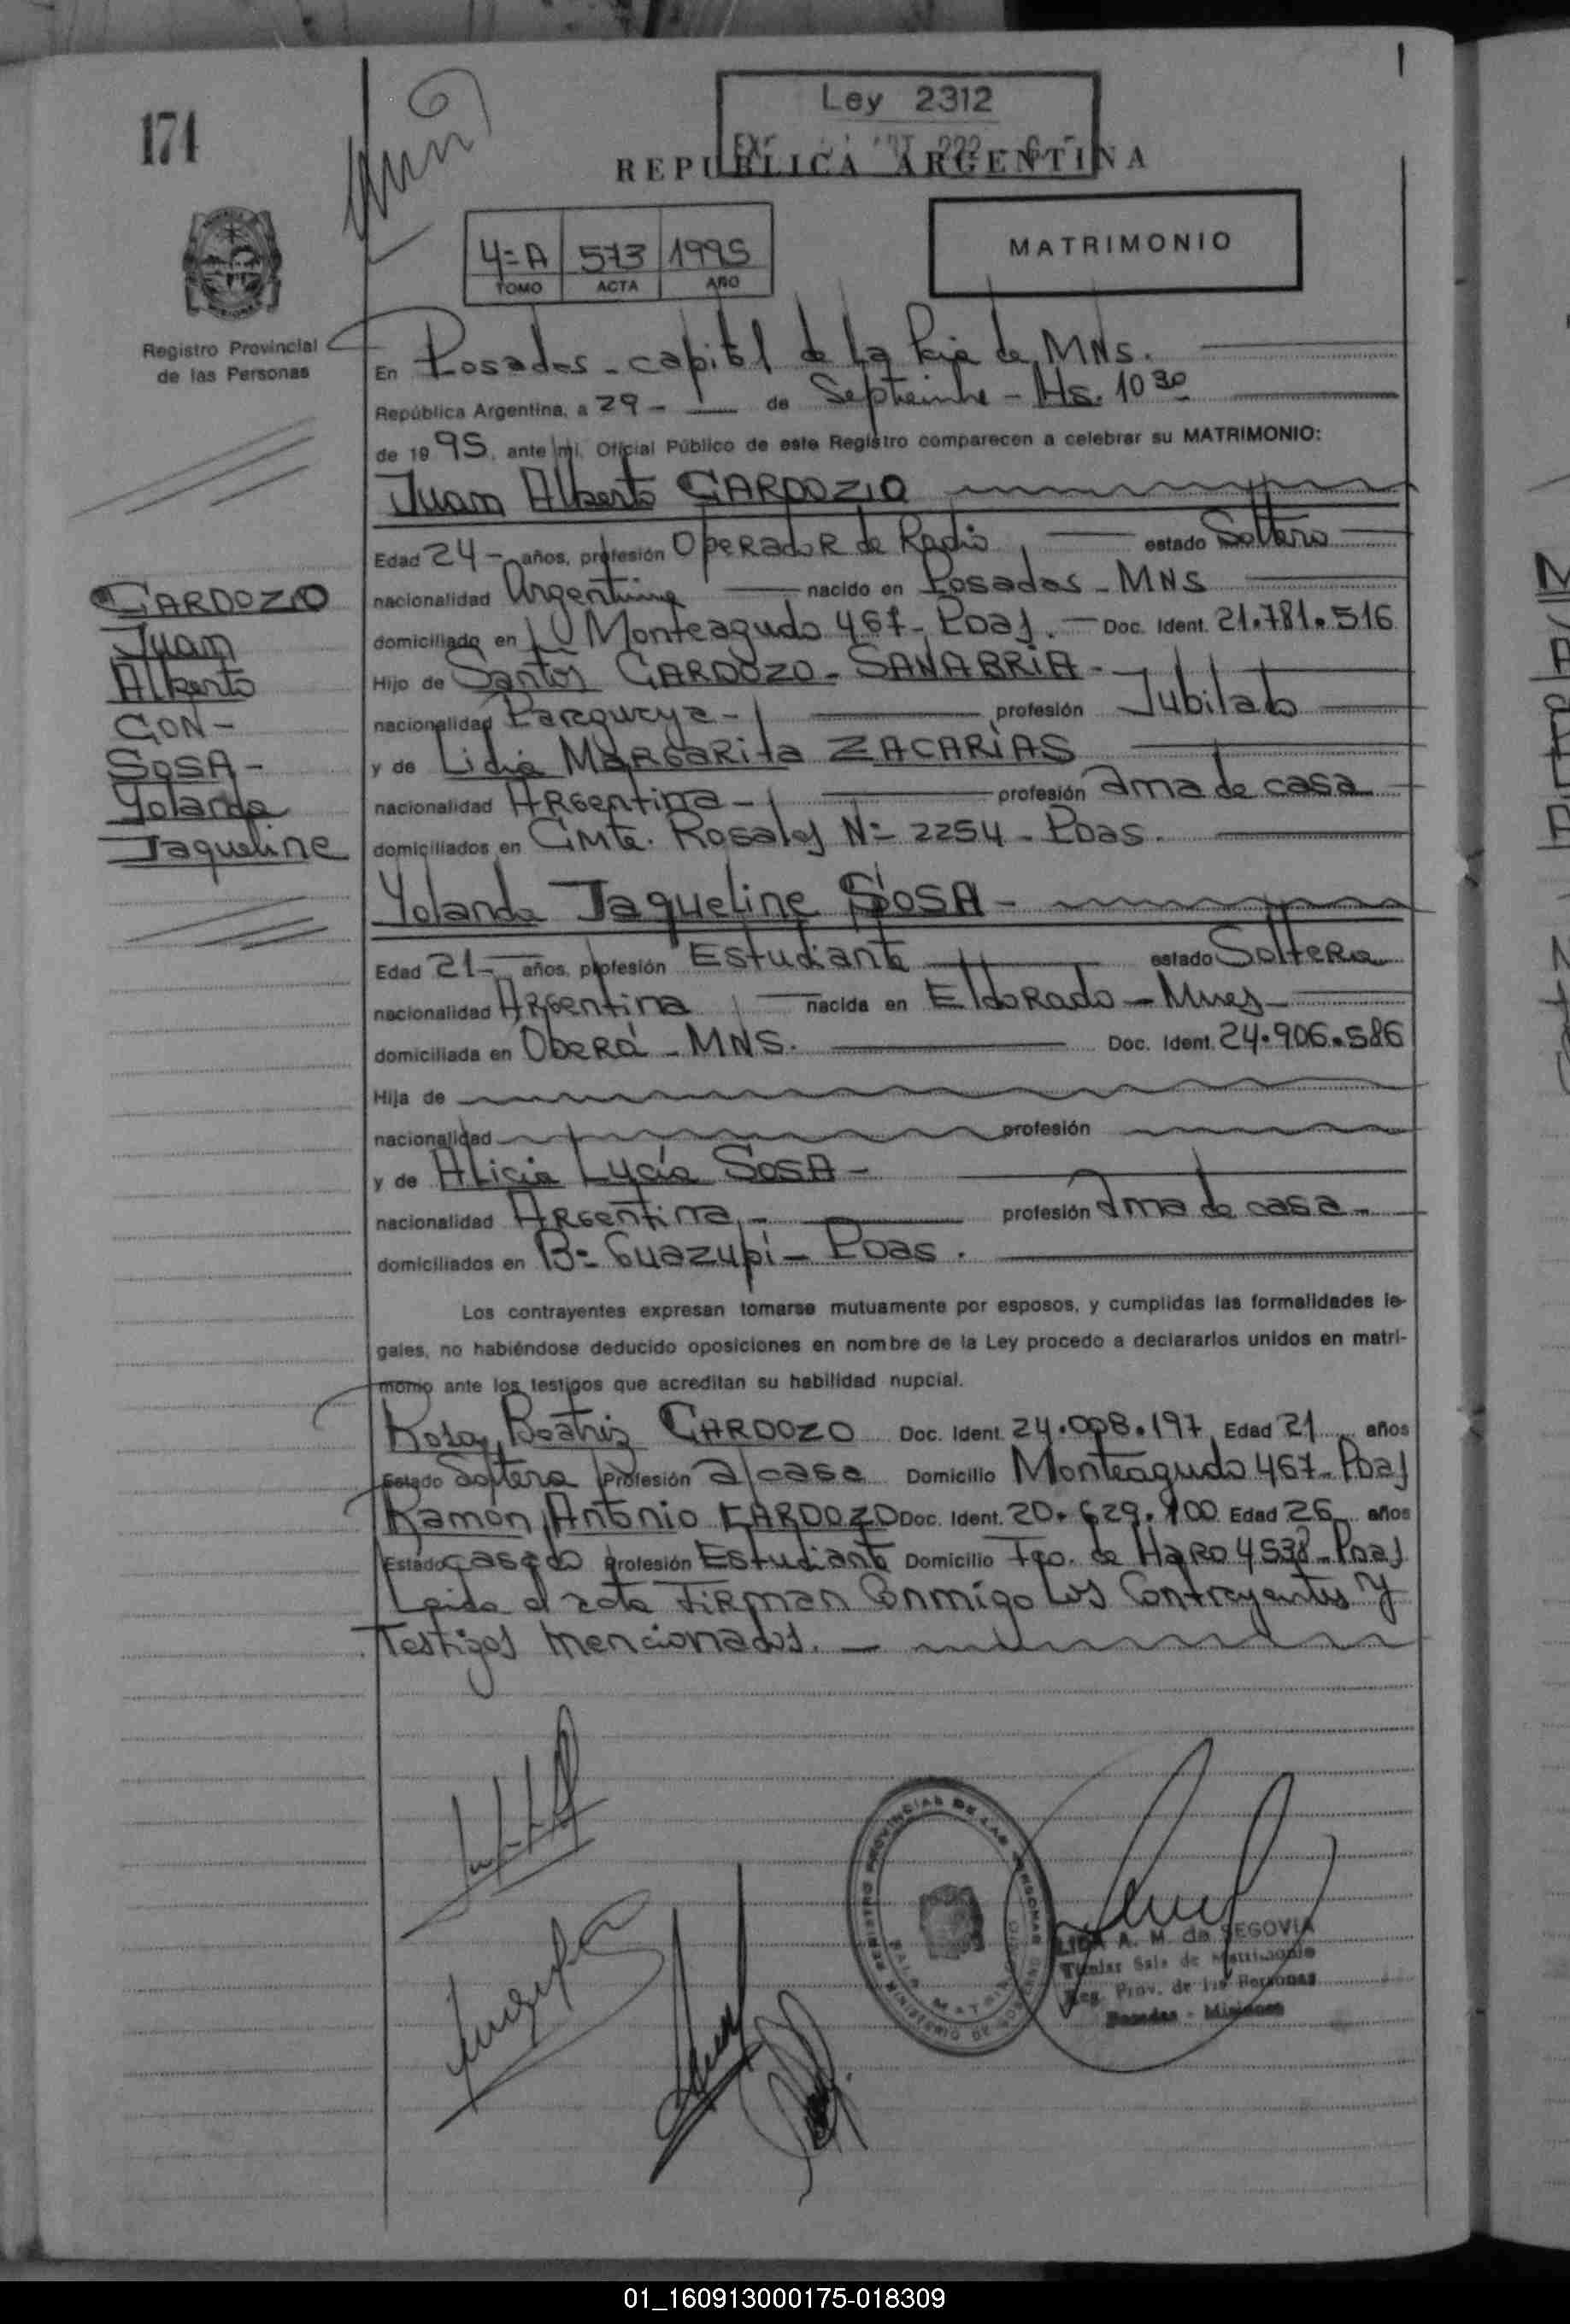 174
Ley 2312
REPUBLICA ARGENTINA
4=A 573 1995
TOMO ACTA AÑO
MATRIMONIO
Registro Provincial
de las Personas
En Posadas - capital de la Pcia de MNS.
República Argentina, a 29 - de Septiembre - Hs. 10 30
de 19 95, ante mi, Oficial Público de este Registro comparecen a celebrar su MATRIMONIO:
Juan Alberto CARDOZO
Edad 24 - años, profesión Operador de Radio, estado Soltero
nacionalidad Argentina nacido en Posadas - MNS
domiciliado en Monteagudo 467 - Pdas. Doc. Ident. 21.781.516
Hijo de Santos CARDOZO - SANABRIA -
nacionalidad Paraguaya - profesión Jubilado
y de Lidia MARGARita ZACARÍAS
nacionalidad ARGentina - profesión Ama de casa
domiciliados en Cmte. Rosales N= 2254 - Pdas.
CARDOZO
Juan
Alberto
CON -
SOSA -
Yolanda
Jaqueline
Yolanda Jaqueline SOSA -
Edad 21 - años, profesión Estudiante estado Soltera
nacionalidad ARGentina nacida en Eldorado - Mnes -
domiciliada en Oberá - MNS. Doc. Ident. 24.906.586
Hija de
nacionalidad profesión
y de Alicia Lucía SOSA -
nacionalidad ARGentina - profesión Ama de casa -
domiciliados en B= Guazupí - Pdas.
Los contrayentes expresan tomarse mutuamente por esposos, y cumplidas las formalidades le-
gales, no habiéndose deducido oposiciones en nombre de la Ley procedo a declararlos unidos en matri-
monio ante los testigos que acreditan su habilidad nupcial.
Rosa Beatriz CARDOZO Doc. Ident. 24.008.197 Edad 21 años
Estado Soltera Profesión a/casa Domicilio Monteagudo 467 - Pdas
Ramón Antonio CARDOZO Doc. Ident. 20.629.900 Edad 26 años
Estado casado Profesión Estudiante Domicilio Tco. de HaRO 4538 - Pdas
Leida el acta FiRman Conmigo los Contrayentes y
Testigos mencionados. -
REGISTRO PROVINCIAS DE LAS PERSONAS
SALA MATRIMONIO
MINISTERIO DE GOBIERNO
LIDIA A. M. de SEGOVIA
Titular Sala de Matrimonio
Reg. Prov. de las Personas
Posadas - Misiones
01_160913000175-018309